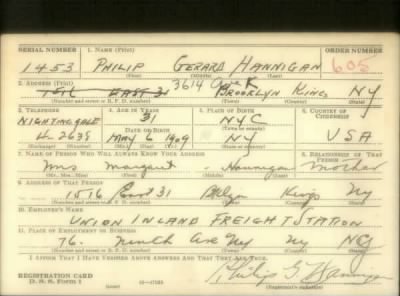 SERIAL NUMBER 1. NAME (Print) ORDER NUMBER
1453 PHILIP GERARD HANNIGAN 605
(First) (Middle) (Last)
3614 Ave K
2. ADDRESS (Print)
1516 EAST 31 BROOKLYN KINGS NY
(Number and street or R. F. D. number) (Town) (County) (State)
3. TELEPHONE 4. AGE IN YEARS 5. PLACE OF BIRTH 6. COUNTRY OF CITIZENSHIP
NIGHTINGALE 31 NYC
4-2639 DATE OF BIRTH (Town or county) USA
MAY 6 1909 NY
(Mo.) (Day) (Yr.) (State or country)
7. NAME OF PERSON WHO WILL ALWAYS KNOW YOUR ADDRESS 8. RELATIONSHIP OF THAT PERSON
Mrs Margaret Hannigan Mother
(Mr., Mrs., Miss) (First) (Middle) (Last)
9. ADDRESS OF THAT PERSON
1516 East 31 Bklyn Kings Ny
(Number and street or R. F. D. number) (Town) (County) (State)
10. EMPLOYER'S NAME
UNION INLAND FREIGHT STATION
11. PLACE OF EMPLOYMENT OR BUSINESS
76 Ninth Ave Ny Ny
(Number and street or R. F. D. number) (Town) (County) (State)
I AFFIRM THAT I HAVE VERIFIED ABOVE ANSWERS AND THAT THEY ARE TRUE.
REGISTRATION CARD
D. S. S. Form 1
(over)
Philip G Hannigan
(Registrant's signature)